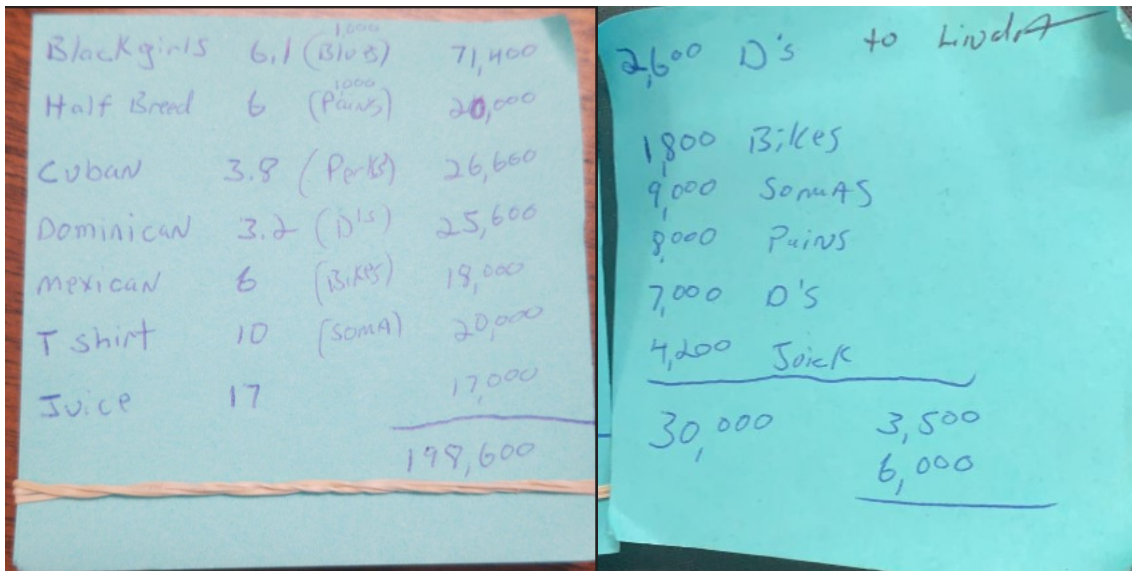 Blackgirls 6.1 (Blues) 1000 71,400
Half Breed 6 (Pains) 1000 20,000
Cuban 3.8 (Perks) 26,600
Dominican 3.2 (D's) 25,600
mexican 6 (Bikes) 18,000
T shirt 10 (somA) 20,000
Juice 17 17,000
198,600
2,600 D's to LindA
1,800 Bikes
9,000 SomAS
8,000 Pains
7,000 D's
4,200 Juick
30,000 3,500
6,000